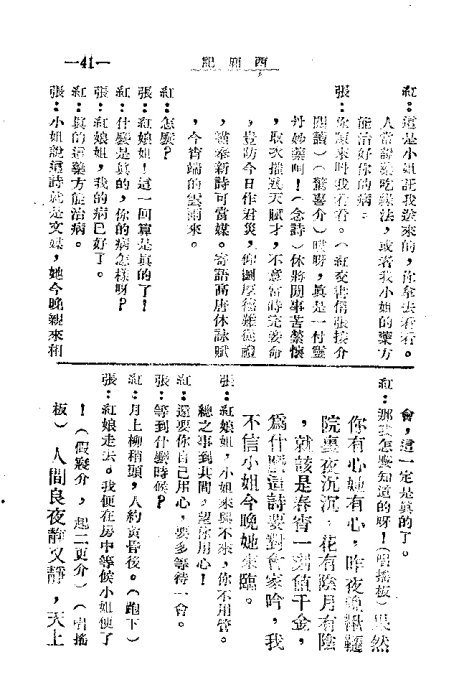 西廂記
—41—
紅：這是小姐託我送來的，你拿去看看。
人常說藥吃緣法，或者我小姐的藥方
能治好你的病。
張：你原來叫我看看。（紅交書信張接介
開讀）（驚喜介）哎呀，真是一付靈
丹妙藥呵！（念詩）休將閒事苦縈懷
，取次摧殘天賦才，不意當時完妾命
，豈防今日作君災，仰圖厚德難從禮
，謹奉新詩可當媒。寄語高唐休詠賦
，今宵端的雲雨來。
紅：怎麼？
張：紅娘姐！這一回算是真的了！
紅：什麼是真的，你的病怎樣呀？
張：紅娘姐，我的病已好了。
紅：真的這藥方能治病。
張：小姐說這詩就是文媒，她今晚親來相
會，這一定是真的了。
紅：那我怎麼知道的呀！（唱搖板）果然
你有心她有心，昨夜鞦韆
院裏夜沉沉，花有陰月有陰
，就該是春宵一刻值千金，
為什麼這詩要對會家吟，我
不信小姐今晚她來臨。
張：紅娘姐，小姐來與不來，你不用管。
總之事到其間，望你用心！
紅：還要你自己用心，要多等待一會。
張：等到什麼時候？
紅：月上柳梢頭，人約黃昏後。（跑下）
張：紅娘走去。我便在房中等候小姐便了
！（假寢介，起二更介）（唱搖
板）人間良夜靜又靜，天上